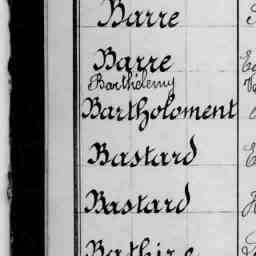 Barre
Barre
Barthélemy
Bartholoment
Bastard
Bastard